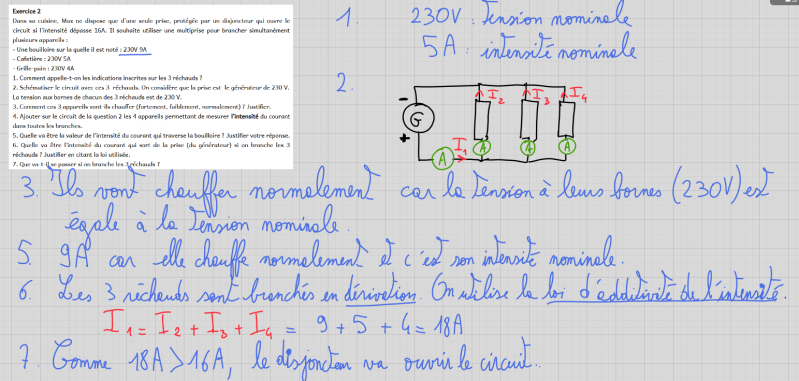 Exercice 2
Dans sa cuisine, Max ne dispose que d'une seule prise, protégée par un disjoncteur qui ouvre le
circuit si l'intensité dépasse 16A. Il souhaite utiliser une multiprise pour brancher simultanément
plusieurs appareils :
- Une bouilloire sur la quelle il est noté : 230V 9A
- Cafetière : 230V 5A
- Grille-pain : 230V 4A
1. Comment appelle-t-on les indications inscrites sur les 3 réchauds ?
2. Schématiser le circuit avec ces 3 réchauds. On considère que la prise est le générateur de 230 V.
La tension aux bornes de chacun des 3 réchauds est de 230 V.
3. Comment ces 3 appareils vont ils chauffer (fortement, faiblement, normalement) ? Justifier.
4. Ajouter sur le circuit de la question 2 les 4 appareils permettant de mesurer l'intensité du courant
dans toutes les branches.
5. Quelle va être la valeur de l'intensité du courant qui traverse la bouilloire ? Justifier votre réponse.
6. Quelle va être l'intensité du courant qui sort de la prise (du générateur) si on branche les 3
réchauds ? Justifier en citant la loi utilisée.
7. Que va t-il se passer si on branche les 3 réchauds ?
1. 230V : Tension nominale
5A : intensité nominale
2.
- I2 I3 I4
G
+ I1
A A A A
3. Ils vont chauffer normalement car la Tension à leurs bornes (230V) est
égale à la Tension nominale.
5. 9A car elle chauffe normalement et c'est son intensité nominale.
6. Les 3 réchauds sont branchés en dérivation. On utilise la loi d'additivité de l'intensité.
I1 = I2 + I3 + I4 = 9 + 5 + 4 = 18A
7. Comme 18A > 16A, le disjoncteur va ouvrir le circuit.